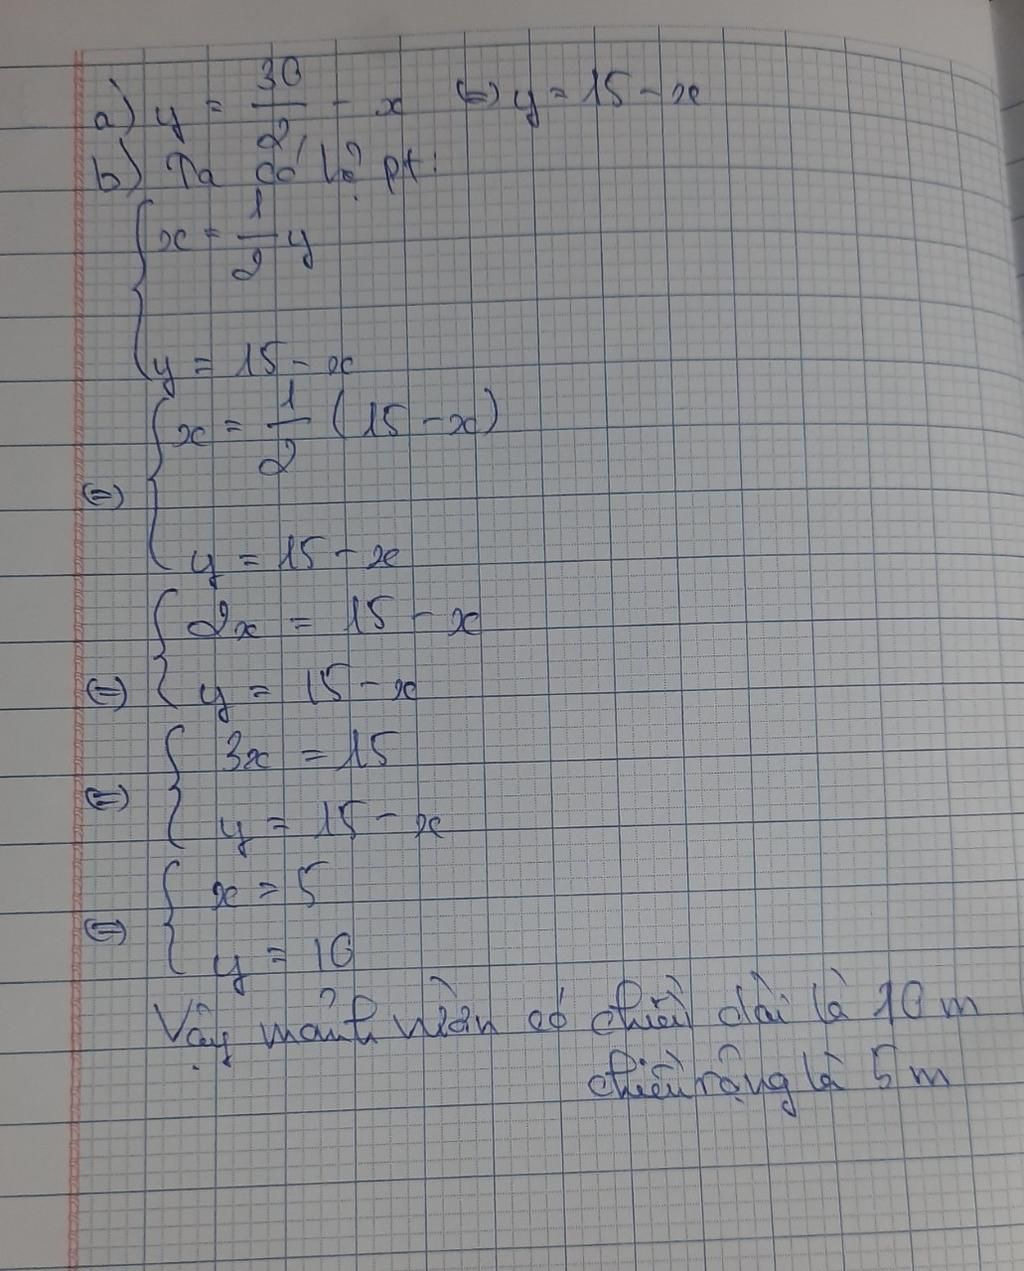 a) y = 30/2 - x (=) y = 15 - x
b) Ta có hệ pt:
{ x = 1/2 y
{ y = 15 - x
(=) { x = 1/2 (15 - x)
{ y = 15 - x
{ 2x = 15 - x
(=) { y = 15 - x
{ 3x = 15
(=) { y = 15 - x
{ x = 5
(=) { y = 10
Vậy mảnh vườn có chiều dài là 10 m
chiều rộng là 5 m